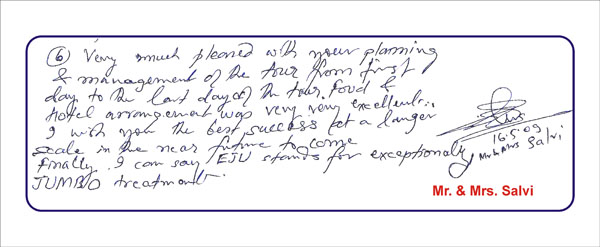 (6) Very much pleased with your planning
& management of the tour from first
day to the last day of the tour. Food &
Hotel arrangement was very very excellent..
I wish you the best success at a larger
scale in the near future to come
Finally I can say EJU stands for exceptionally
JUMBO treatment.
16.5.09
Mr & Mrs Salvi
Mr. & Mrs. Salvi